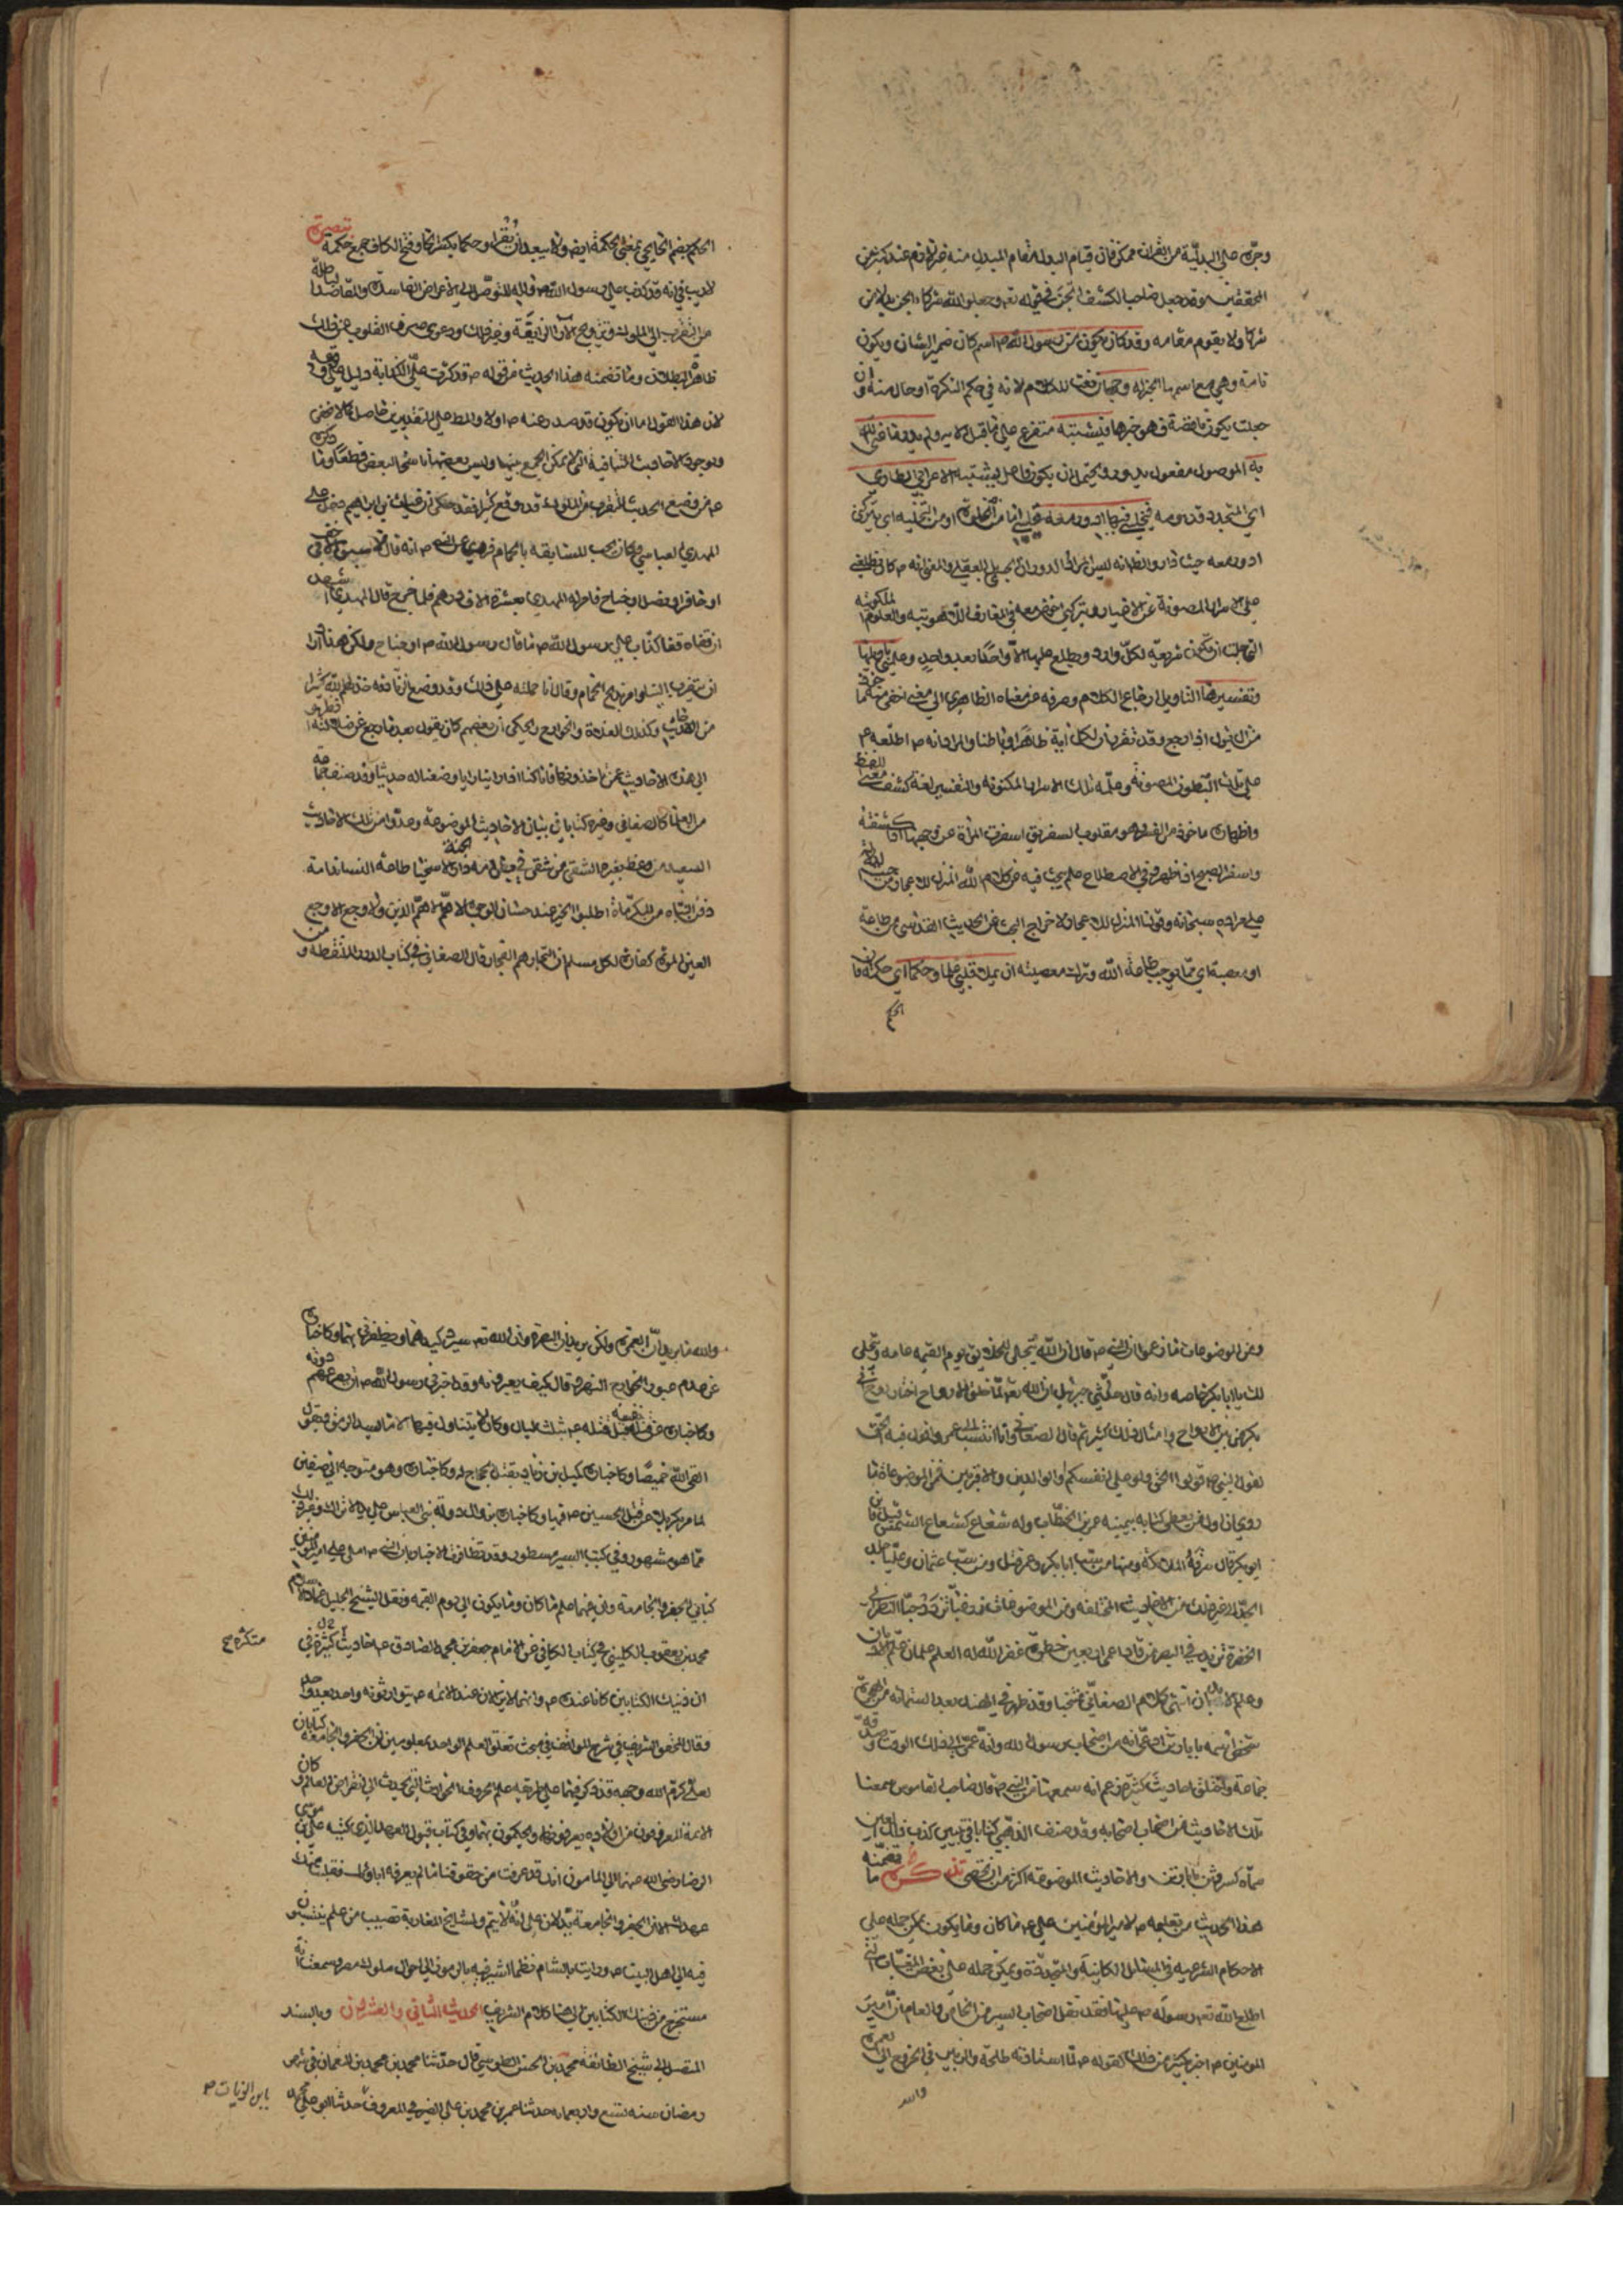 وجرّه على البدلية من القرآن ممكن فان قيام البدل مقام المبدل منه غير لازم عند كثير من
المحققين وقد جعل صاحب الكشاف الجن في قوله تعه وجعلوا لله شركاء الجن بدلا من
شركاء ولا يقوم مقامه وقد كان يكون من رسول الله ص اسم كان ضمير الشان ويكون
تامة وهي مع اسمها الخبر له وجهان نعت للكلام لانه في حكم النكرة او حال منه وان
جعلت يكون ناقصة فهو خبرها فيشتبه متفرع على ما قبل الاية ولم يدر ما عنى الله
به الموصول مفعول يدر ويحتمل ان يكون فاعل يشتبه الاعرابي الطاري
اي المتجدد قدومه فيخليني فيها ادور معه
ادور معه حيث دار والظ انه ليس المراد الدوران الجسمي بل العقلي والمعنى انه ص كان يطلعني
على الاسرار المصونة عن الاغيار ويتركني اخوض معه في المعارف اللاهوتية والعلوم الملكوتية
التي جلت ان تكون شريعة لكل وارد ويطلع عليها الا واحدا بعد واحد وعلمني تاويلها
وتفسيرها التاويل ارجاع الكلام وصرفه عن معناه الظاهري الى معنى اخفى منه ماخوذ
من ال يؤل اذا رجع وقد تقرر ان لكل اية ظاهرا وباطنا والمراد انه ص اطلعه ع
على تلك البطون المصونة وعلمه تلك الاسرار المكنونة والتفسير لغة كشف معنى اللفظ
واظهاره ماخوذ من الفسر وهو مقلوب السفر يق اسفرت المراة عن وجهها اذا كشفته
واسفر الصبح اذا ظهر وفي الاصطلاح علم يبحث فيه عن كلام الله المنزل للاعجاز من حيث الدلالة
على مراده سبحانه وقولنا المنزل للاعجاز لاخراج البحث عن الحديث القدسي من طاعة
او معصية اي مما يوجب طاعة الله وترك معصيته ان يملا قلبي علما وحكما اي حكمة فان
الحكم
الحكم بضم الحا يجئ بمعنى الحكمة ايض ولا يبعد ان يقرا وحكما بكسر الحا وفتح الكاف جمع حكمة تبصرة
لا ريب في انه قد كذب على رسول الله ص واله للتوصل الى الاغراض الفاسدة والمقاصد الباطلة
من التقرب الى الملوك وترويج الاراء الزايفة وغير ذلك ودعوى صرف القلوب عن ذلك
ظاهرة البطلان وما تضمنه هذا الحديث من قوله ص قد كثرت علي الكذابة دليل على وقوعه
لان هذا القول اما ان يكون قد صدر عنه ص اولا والمط على التقديرين حاصل كما لا يخفى
ووجود الاحاديث المتنافية التي لا يمكن الجمع بينها وليس بعضها ناسخا لبعض قطعا وما ذكره
ع من وضع الحديث للتقرب من الملوك قد وقع كثيرا فقد حكي ان غياث بن ابراهيم دخل على
المهدي العباسي وكان يحب المسابقة بالحمام فروى عن النبي ص انه قال لا سبق الا في خف
او حافر او نصل او جناح فامر له المهدي بعشرة الاف درهم فلما خرج قال المهدي اشهد
ان قفاه قفا كذاب على رسول الله ص ما قال رسول الله ص او جناح ولكن هذا اراد
ان يتقرب الينا وامر بذبح الحمام وقال انا حملته على ذلك وقد وضع
من الاحاديث وكذلك الغلاة والخوارج ويحكى ان بعضهم كان يقول بعد ما رجع عن ضلالته انظروا
الى هذه الاحاديث عمن تاخذونها فانا كنا اذا راينا رايا وضعنا له حديثا وقد صنف جماعة
من العلما كالصغاني وغيره كتابا في بيان الاحاديث الموضوعة وعدوا من تلك الاحاديث
السعيد من وعظ بغيره الشقي من شقي في بطن امه الجنة دار الاسخيا طاعة النسا ندامة
دفن البنات من المكرمات اطلبوا الخير عند حسان الوجوه لا هم الا هم الدين ولا وجع الا وجع
العين الموت كفارة لكل مسلم ان التجار هم الفجار قال الصغاني في كتاب الدر الملتقط ومن
ومن الموضوعات ما زعموا ان النبي ص قال ان الله يتجلى للخلايق يوم القيمة عامة ويتجلى
لك يا ابا بكر خاصة وانه قال حدثني جبرئيل ان الله تعه لما خلق الارواح اختار روح ابي
بكر من بين الارواح وامثال ذلك كثير ثم قال الصغاني وانا انتسب الى عمر واقول فيه الحق
لقول النبي ص قولوا الحق ولو على انفسكم او الوالدين والاقربين فمن الموضوعات ما
روي ان اول من يعطى كتابه بيمينه عمر بن الخطاب وله شعاع كشعاع الشمس قيل فاين
ابو بكر قال سرقة الملائكة ومنها من سب ابا بكر وعمر قتل ومن سب عثمان وعليا جلد
الحد الى غير ذلك من الاحاديث المختلفة ومن الموضوعات زر غبا تزدد حبا النظر الى
الخضرة تزيد في البصر من قاد اعمى اربعين خطوة غفر الله له العلم علمان علم الاديان
وعلم الابدان انتهى كلام الصغاني منتخبا وقد ظهر في الهند بعد الستمائة من الهجرة
شخص اسمه بابا رتن ادعى انه من اصحاب رسول الله وانه عمر الى ذلك الوقت وصدقه
جماعة واختلق احاديث كثيرة زعم انه سمعها من النبي ص قال صاحب القاموس سمعنا
تلك الاحاديث من اصحاب اصحابه وقد صنف الذهبي كتابا في تبيين كذب ذلك اللعين
سماه كسر وثن بابا رتن والاحاديث الموضوعة اكثر من ان تحصى تذكرة ما تضمنه
هذا الحديث من تعليمه ص لامير المؤمنين على ع ما كان وما يكون يمكن حمله على
الاحكام الشرعية في المسائل الكاينة والمتجددة ويمكن حمله على بعض المغيبات التي
اطلع الله تعه رسوله ص عليها فقد نقل اصحاب السير من الخاص والعام ان امير
المومنين ع اخبر بكثير من ذلك كقوله ع لما استاذنه طلحة والزبير في الخروج الى العمرة
والله
والله ما يريدان العمرة ولكن يريدان البصرة وان الله تعه سيرد كيدهما ويظفرني بهما وكاخباره
عن عدم عبور الخوارج النهروان قال كيف يعبرونه وقد اخبرني رسول الله ص ان مصرعهم دونه
وكاخباره عن قتله نفسه قبل قتله ع بثلث ليال وكان لا يتناول فيها الا ما يسد الرمق ويقول
القى الله خميصا وكاخباره كميل بن زياد بقتل الحجاج له وكاخباره وهو متوجه الى صفين
لما مر بكربلا عن قتل الحسين ع فيها وكاخباره بزوال دولة بني العباس على يد الاتراك وغير ذلك
مما هو مشهور وفي كتب السير مسطور وقد تظافرت الاخبار بان النبي ص املى على امير المؤمنين
كتابي الجفر والجامعة وان فيهما علم ما كان وما يكون الى يوم القيمة ونقل الشيخ الجليل عماد الاسلام
محمد بن يعقوب الكليني في كتاب الكافي عن الامام جعفر بن محمد الصادق ع احاديث كثيرة في
ان ذينك الكتابين كانا عنده ع وانهما لا يزالان عند الائمة ع يتوارثونه واحد بعد واحد
وقال المحقق الشريف في شرح المواقف في مبحث تعلق العلم الواحد بمعلومين ان الجفر والجامعة كتابان
لعلي كرم الله وجهه قد ذكر فيهما على طريقة علم الحروف الحوادث التي تحدث الى انقراض العالم وكان
الائمة المعروفون من اولاده يعرفونهما ويحكمون بهما وفي كتاب قبول العهد الذي كتبه علي بن موسى
الرضا رضي الله عنهما الى المامون انك قد عرفت من حقوقنا ما لم يعرفه اباؤك فقبلت منك
عهدك الا ان الجفر والجامعة يدلان على انه لا يتم ولمشايخ المغاربة نصيب من علم ينتسبون
فيه الى اهل البيت ع ورايت بالشام نظما اشير فيه بالرموز الى احوال ملوك مصر وسمعت انه
مستخرج من ذينك الكتابين الى هنا كلام الشريف الحديث الثاني والعشرون وبالسند
المتصل الى شيخ الطائفة محمد بن الحسن الطوسي قال حدثنا محمد بن محمد بن النعمان في شهر
رمضان سنة تسع واربعمائة حدثنا عمر بن محمد بن علي الصيرفي المعروف حدثنا ابو علي محمد
متكثرة ع
بابن الزيات ص